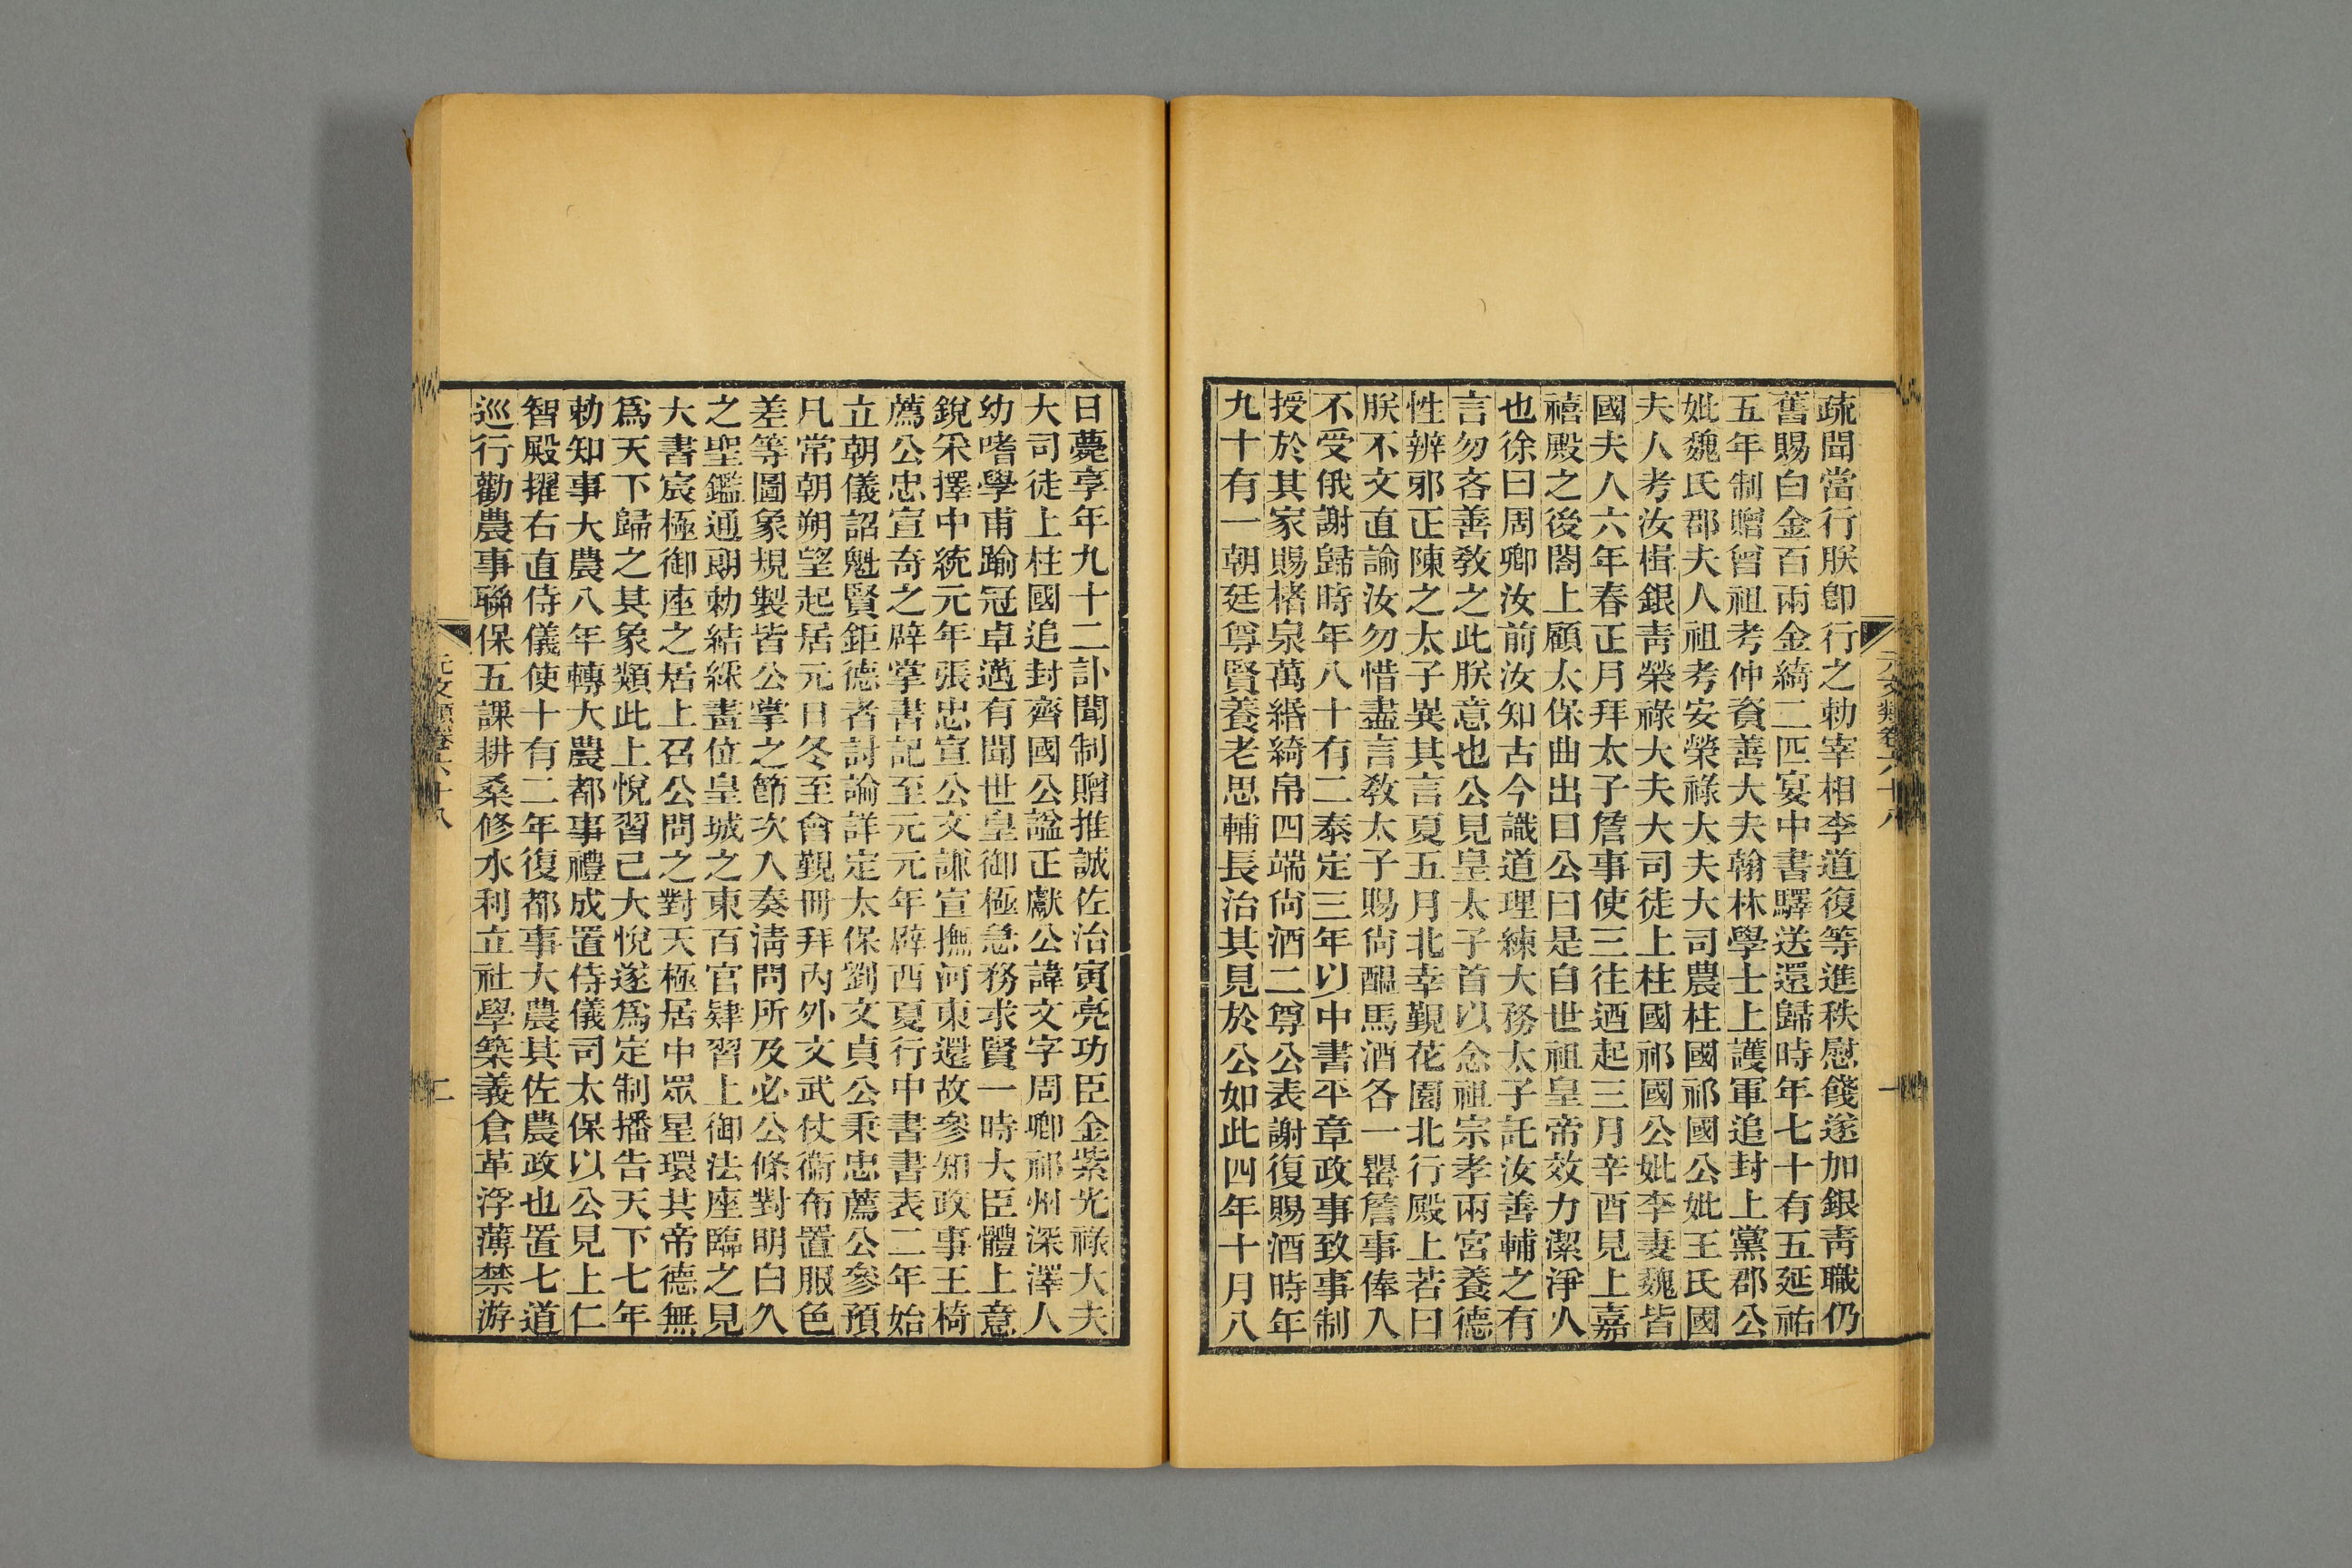 疏聞當行朕卽行之勅宰相李道復等進秩慰餞遂加銀靑職仍
舊賜白金百兩金綺二匹宴中書驛送還歸時年七十有五延祐
五年制贈曾祖考仲資善大夫翰林學士上護軍追封上黨郡公
妣魏氏郡夫人祖考安榮祿大夫大司農柱國祁國公妣王氏國
夫人考汝楫銀靑榮祿大夫大司徒上柱國祁國公妣李妻魏皆
國夫人六年春正月拜太子詹事使三往迺起三月辛酉見上嘉
禧殿之後閤上顧太保曲出目公曰是自世祖皇帝效力潔淨人
也徐曰周卿汝前汝知古今識道理練大務太子託汝善輔之有
言勿吝善敎之此朕意也公見皇太子首以念祖宗孝兩宮養德
性辨邪正陳之太子異其言夏五月北幸覲花園北行殿上若曰
朕不文直諭汝勿惜盡言敎太子賜尙醞馬酒各一罌詹事俸入
不受俄謝歸時年八十有二泰定三年以中書平章政事致事制
授於其家賜楮泉萬緡綺帛四端尙酒二尊公表謝復賜酒時年
九十有一朝廷尊賢養老思輔長治其見於公如此四年十月八
日薨享年九十二訃聞制贈推誠佐治寅亮功臣金紫光祿大夫
大司徒上柱國追封齊國公諡正獻公諱文字周卿祁州深澤人
幼嗜學甫踰冠卓邁有聞世皇御極急務求賢一時大臣體上意
銳采擇中統元年張忠宣公文謙宣撫河東還故參知政事王椅
薦公忠宣奇之辟掌書記至元元年辟西夏行中書書表二年始
立朝儀詔魁賢鉅德者討論詳定太保劉文貞公秉忠薦公參預
凡常朝朔望起居元日冬至會覲冊拜內外文武仗衞布置服色
差等圖象規製皆公掌之節次入奏淸問所及必公條對明白久
之聖鑑通郞勅結綵畫位皇城之東百官肄習上御法座臨之見
大書宸極御座之居上召公問之對天極居中眾星環共帝德無
爲天下歸之其象類此上悅習己大悅遂爲定制播告天下七年
勅知事大農八年轉大農都事禮成置侍儀司太保以公見上仁
智殿擢右直侍儀使十有二年復都事大農其佐農政也置七道
巡行勸農事聯保五課耕桑修水利立社學築義倉革浮薄禁游